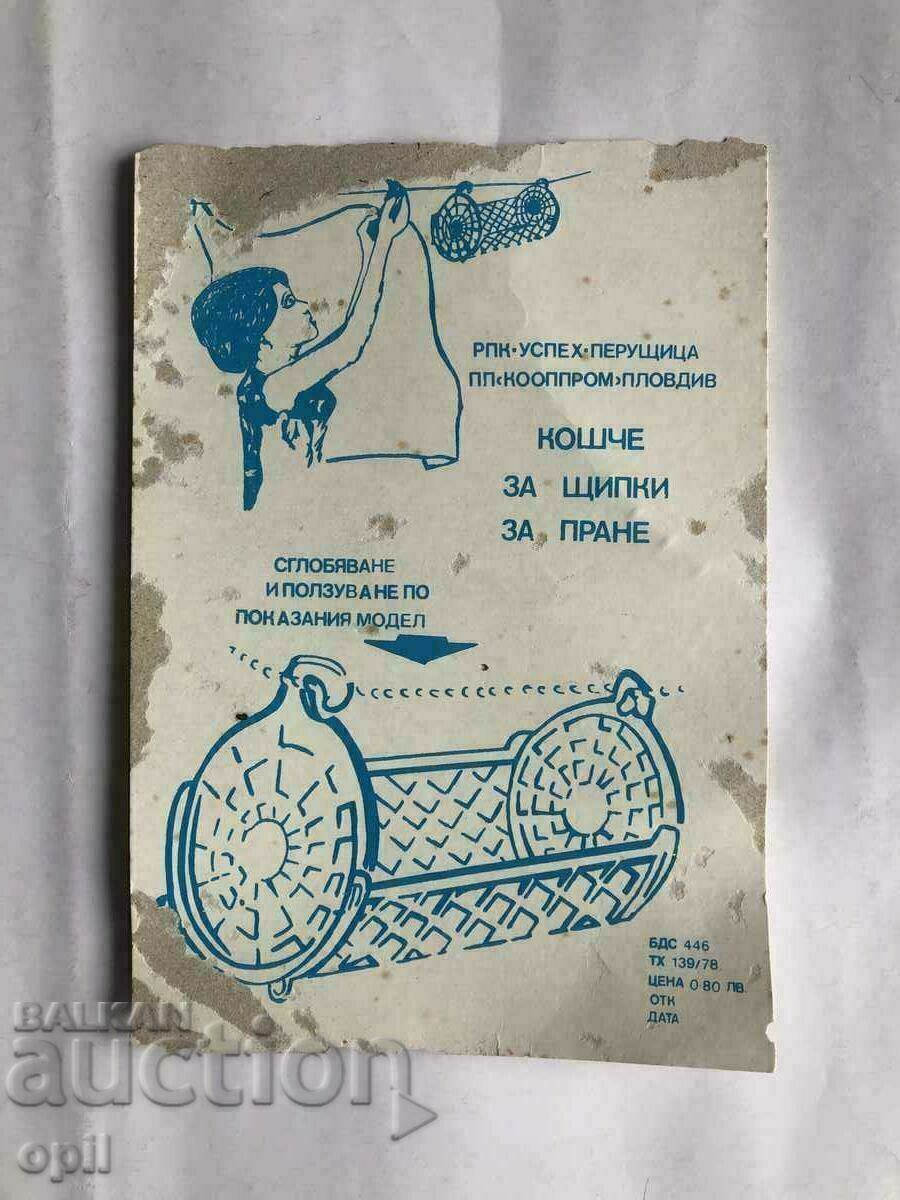 РПК·УСПЕХ·ПЕРУЩИЦА
ПП‹КООППРОМ›ПЛОВДИВ
КОШЧЕ
ЗА ЩИПКИ
ЗА ПРАНЕ
СГЛОБЯВАНЕ
И ПОЛЗУВАНЕ ПО
ПОКАЗАНИЯ МОДЕЛ
БДС 446
ТХ 139/78
ЦЕНА 0.80 ЛВ.
ОТК
ДАТА
BALKAN
auction
opil